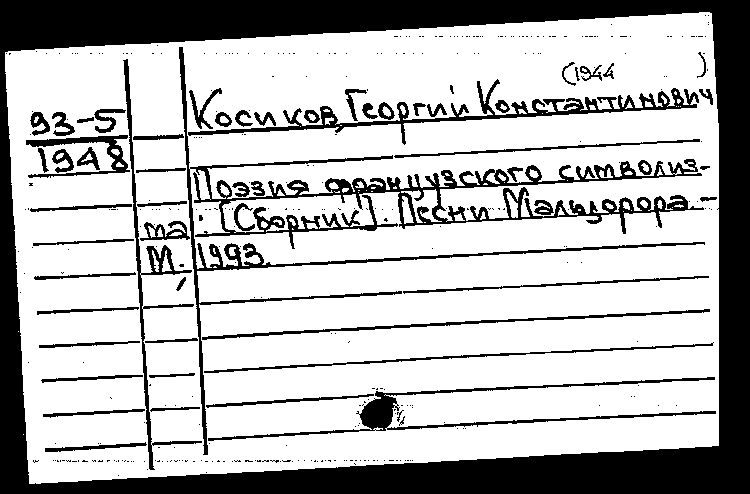 (1944 )
Косиков, Георгий Константинович
93-5
1948
Поэзия французского символиз-
ма: [Сборник]. Песни Мальдорора. -
М., 1993.